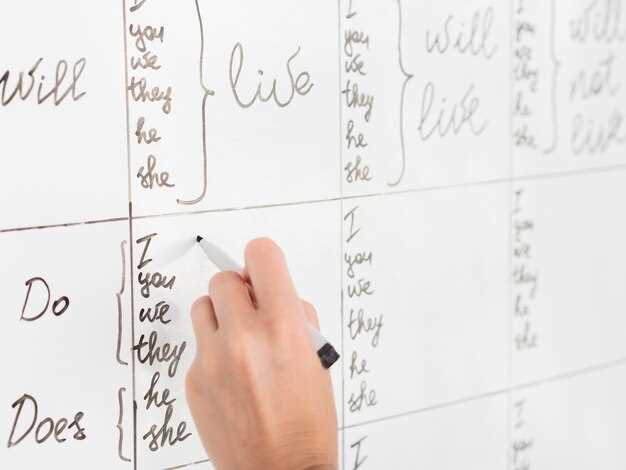 Will
I
you
we
they
he
she
live
I
you
we
they
he
she
will
live
you
we
they
he
she
will
not
live
Do
Does
I
you
we
they
he
she
I
you
we
they
he
she
I
you
we
they
he
she
I
I
you